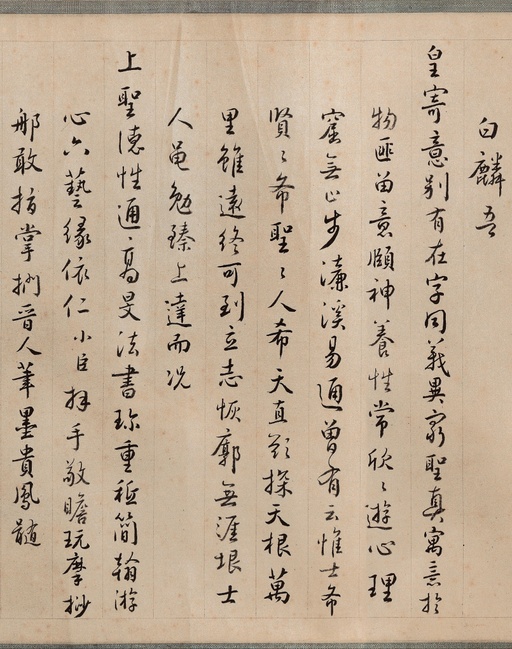 白麟吾
皇寄意別有在字同義異家聖真寓意於
物匪留意頤神養性常欣〻遊心理
窟無止步濂溪易通曾有云惟士希
賢〻希聖〻人希天直欲探天根萬
里雖遠終可到立志恢廓無涯垠士
人黽勉臻上達而況
上聖德性通高旻法書珍重秪簡翰游
心六藝緣依仁小臣拜手敬瞻玩摩挱
那敢指掌捫晉人筆墨貴鳳髓